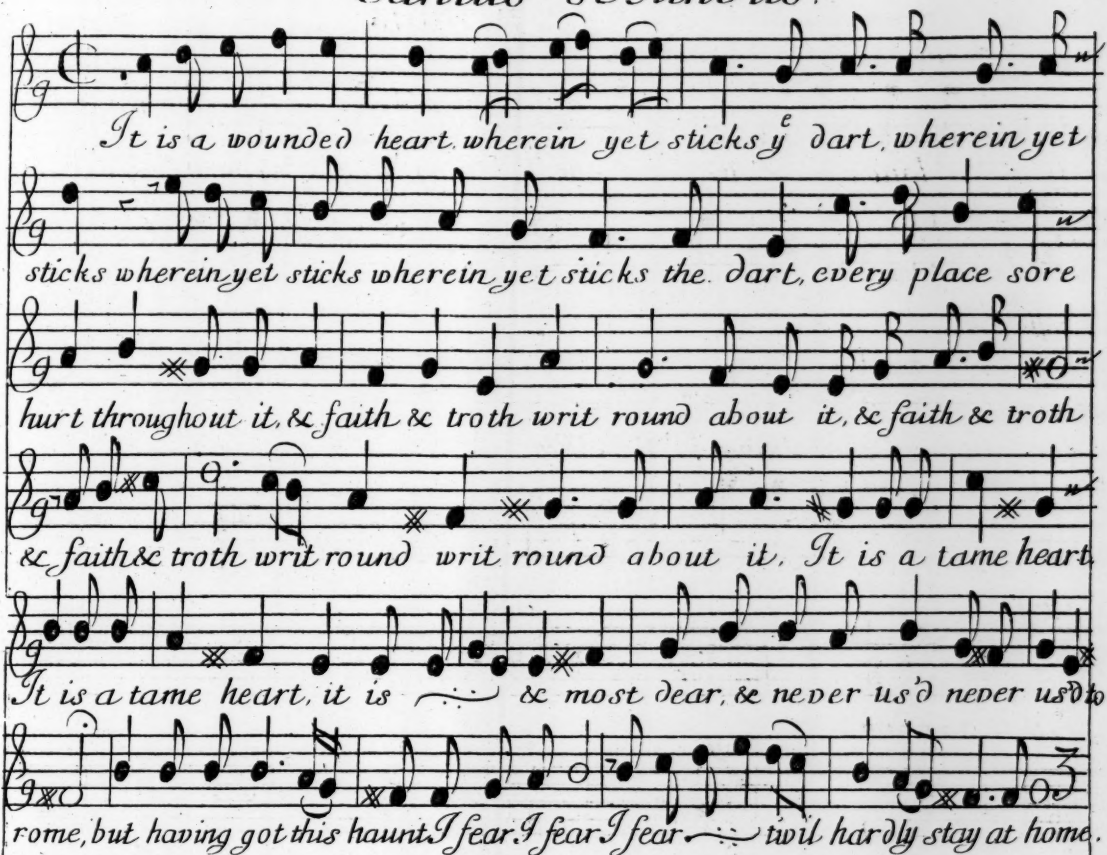 It is a wounded heart wherein yet sticks yᵉ dart, wherein yet
sticks wherein yet sticks wherein yet sticks the dart, every place sore
hurt throughout it, & faith & troth writ round about it, & faith & troth
& faith & troth writ round writ round about it. It is a tame heart
It is a tame heart, it is & most dear, & never us'd never us'd to
rome, but having got this haunt I fear I fear I fear twil hardly stay at home.
3